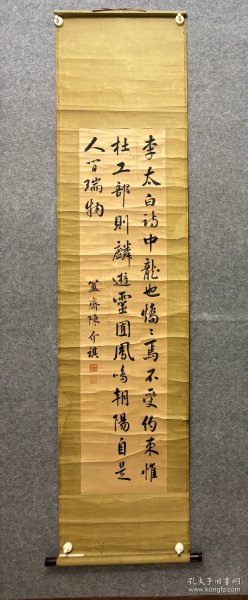 李太白诗中龍也憍〻焉不受约束惟
杜工部则麟遊靈囿鳳鸣朝陽自是
人间瑞物
簠齋陳介祺
孔夫子旧书网